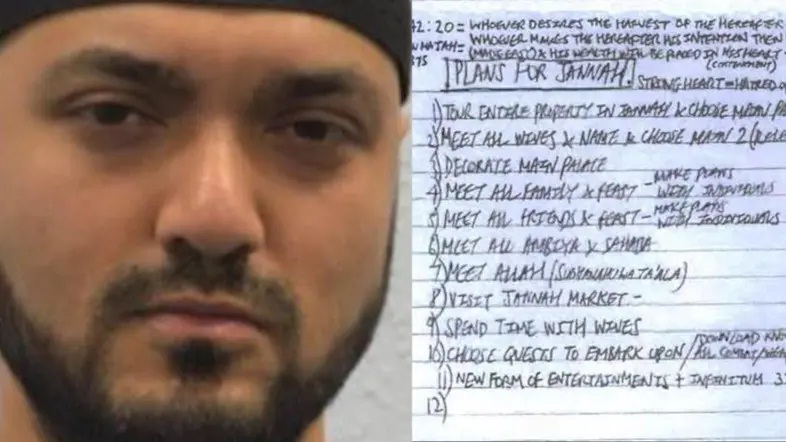 42:20 = WHOEVER DESIRES THE HARVEST OF THE HEREAFTER
WHOEVER MAKES THE HEREAFTER HIS INTENTION THEN
(MAKE EASY) & HIS WEALTH WILL BE PLACED IN HIS HEART -
(CONTENTMENT)
PLANS FOR JANNAH.
STRONG HEART = HATRED OF
1) TOUR ENTIRE PROPERTY IN JANNAH & CHOOSE MAIN
2) MEET ALL WIVES & NAME & CHOOSE MAIN 2
3) DECORATE MAIN PALACE
4) MEET ALL FAMILY & FEAST - MAKE PLANS WITH INDIVIDUALS
5) MEET ALL FRIENDS & FEAST - MAKE PLANS WITH INDIVIDUALS
6) MEET ALL ANBIYA & SAHABA
7) MEET ALLAH (SUBHANAHUWATA'ALA)
8) VISIT JANNAH MARKET -
9) SPEND TIME WITH WIVES
10) CHOOSE QUESTS TO EMBARK UPON / DOWNLOAD
ALL COMBAT
11) NEW FORM OF ENTERTAINMENTS + INFINITUM
12)